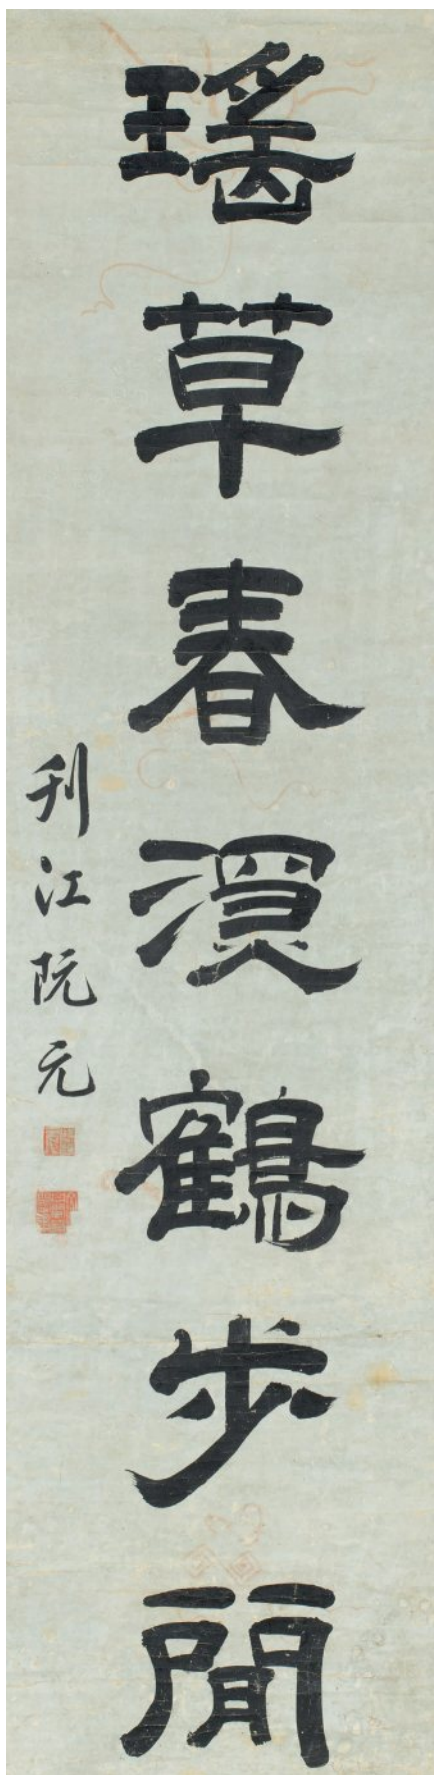 瑤草春深鶴步閒
刊江阮元